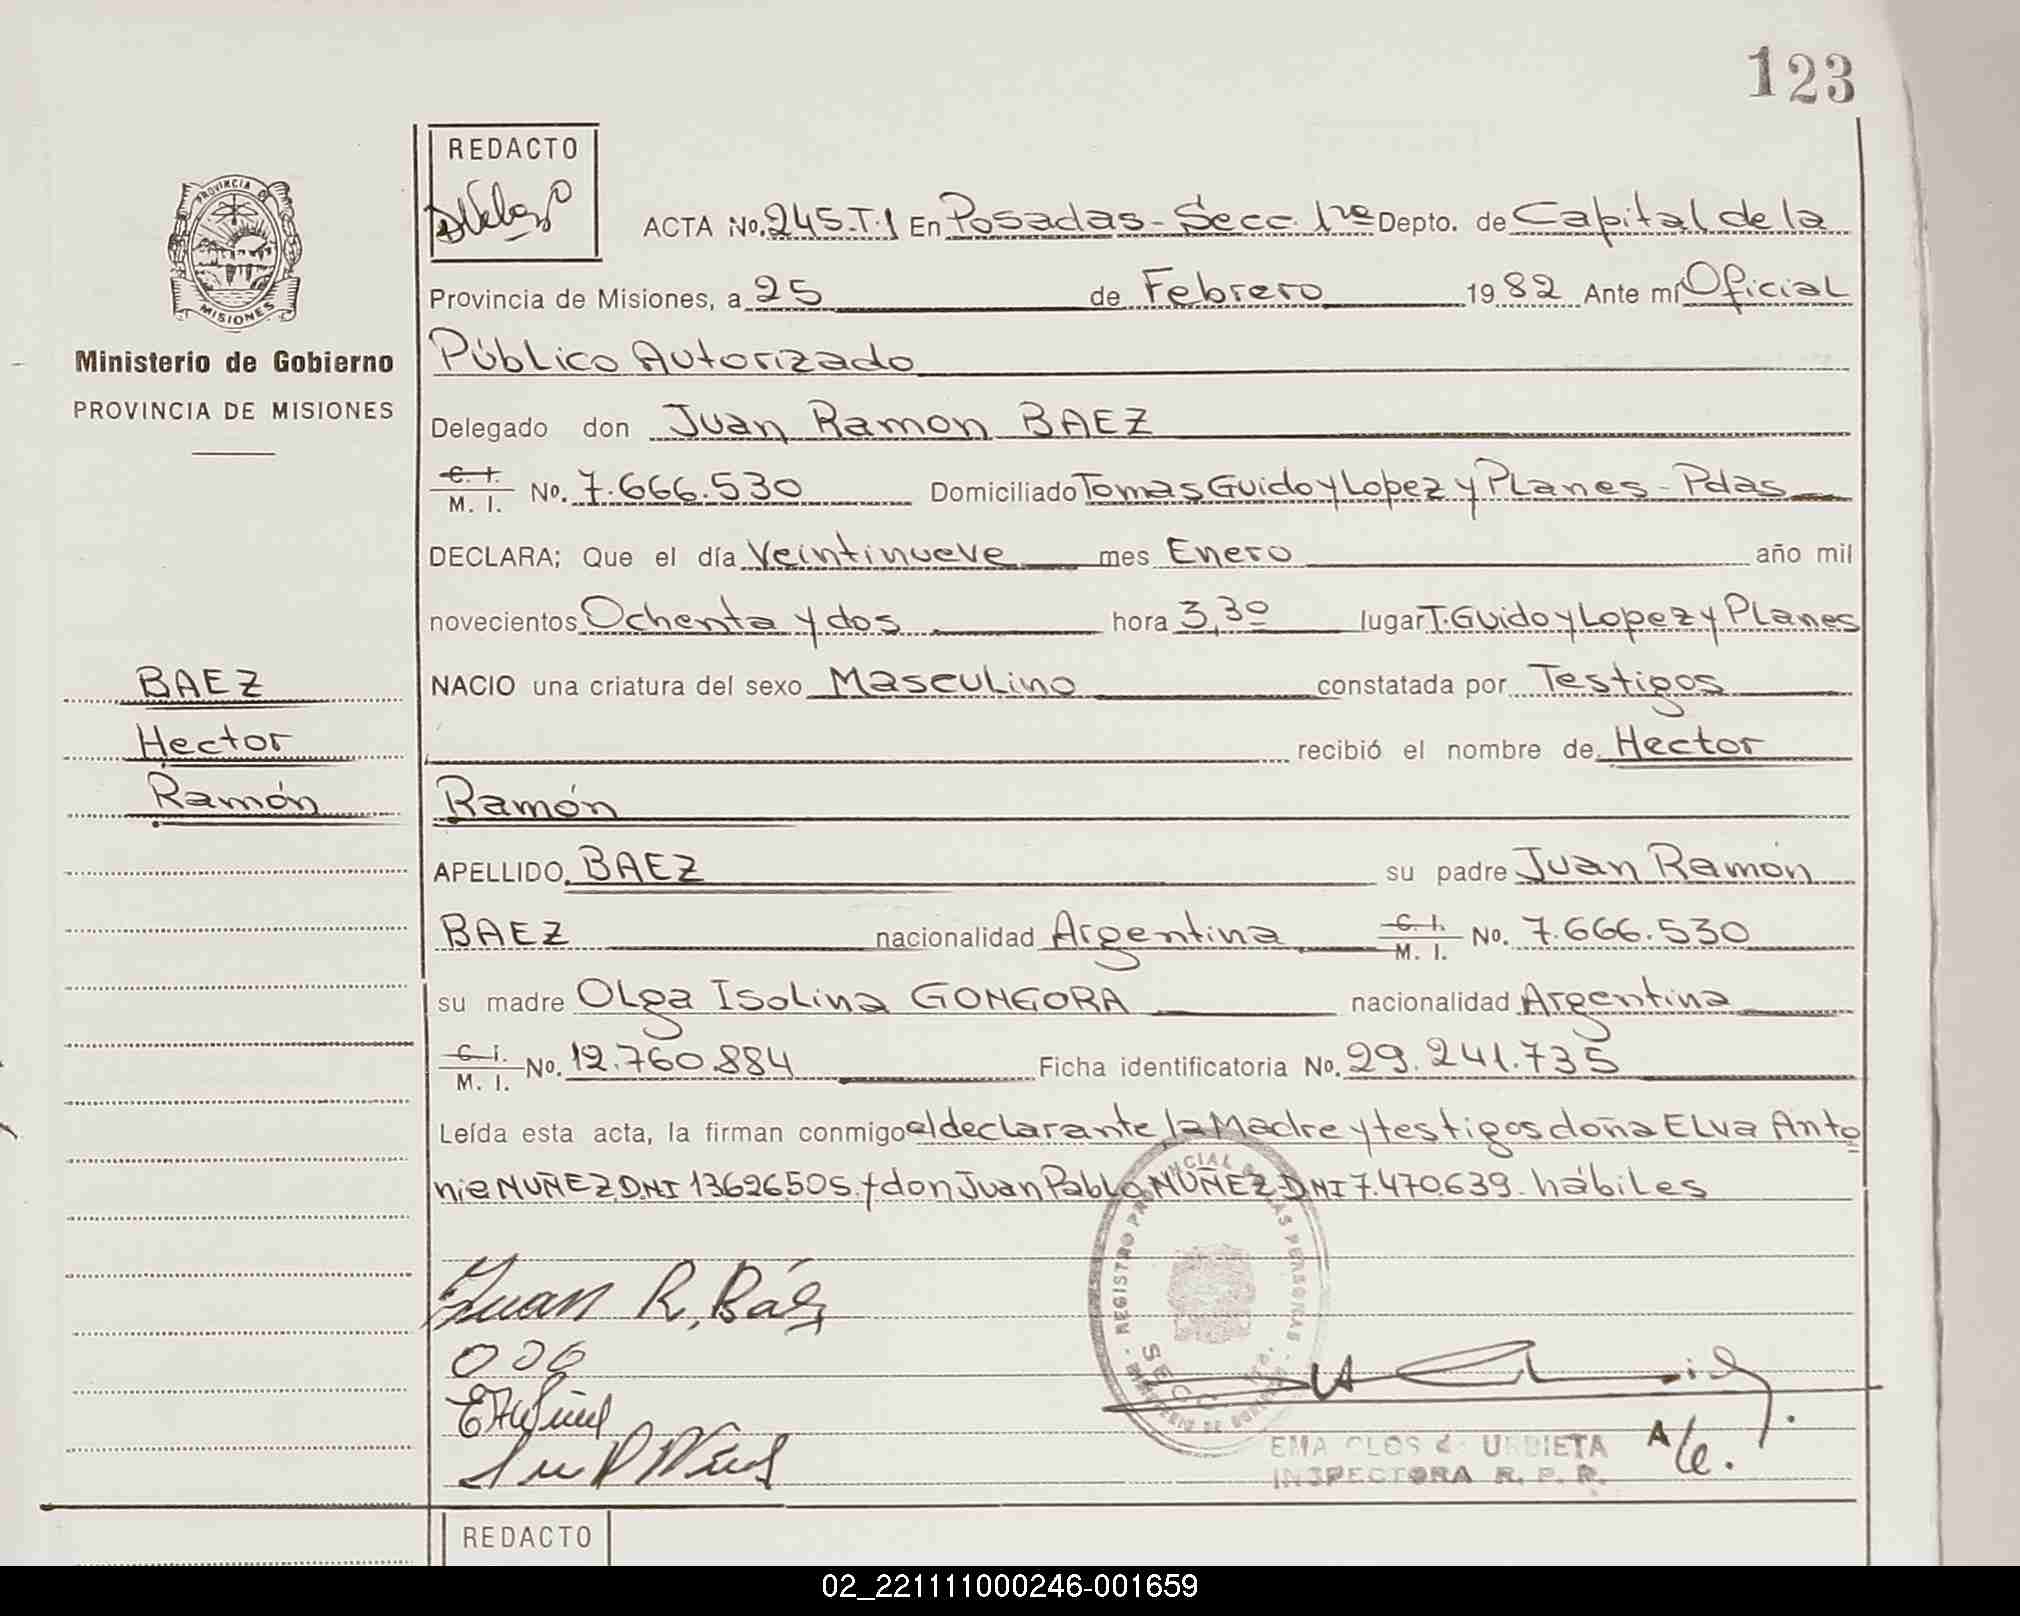 123
REDACTO
ACTA No. 245-T.1 En Posadas - Secc. 1ra Depto. de Capital de la
Provincia de Misiones, a 25 de Febrero 1982 Ante mí Oficial
Público Autorizado
Delegado don Juan Ramon BAEZ
C. I. M. I. No. 7.666.530 Domiciliado Tomas Guido y Lopez y Planes - Pdas
DECLARA; Que el día Veintinueve mes Enero año mil
novecientos Ochenta y dos hora 3,30 lugar T. Guido y Lopez y Planes
NACIO una criatura del sexo Masculino constatada por Testigos
recibió el nombre de Hector
Ramón
APELLIDO BAEZ su padre Juan Ramón
BAEZ nacionalidad Argentina C. I. M. I. No. 7.666.530
su madre Olga Isolina GONGORA nacionalidad Argentina
C. I. M. I. No. 12.760.884 Ficha identificatoria No. 29.241.735
Leída esta acta, la firman conmigo el declarante, la Madre y testigos doña Elva Anto
nia NUÑEZ DNI 13626505 y don Juan Pablo NUÑEZ DNI 7.470.639. hábiles
Juan R. Báez
PROVINCIA DE
MISIONES
Ministerio de Gobierno
PROVINCIA DE MISIONES
BAEZ
Hector
Ramón
REGISTRO PROVINCIAL DE LAS PERSONAS
SECC.
EMA CLOS de URBIETA
INSPECTORA R. P. P.
REDACTO
02_221111000246-001659